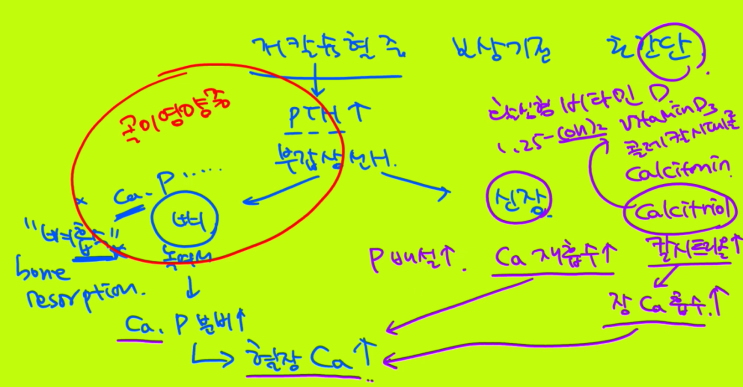 저칼슘혈증 보상기전 초간단.
PTH↑
부갑상선H.
골이영양증
Ca. P.....
뼈
"뼈흡수"
bone
resorption.
녹여서
Ca. P 분비↑
혈장 Ca↑
신장
P 배설↑. Ca 재흡수↑ 칼시트리올↑
장 Ca 흡수↑
활성형 비타민 D
1.25-(OH)2 vitamin D3
콜레칼시페롤
Calcitriol